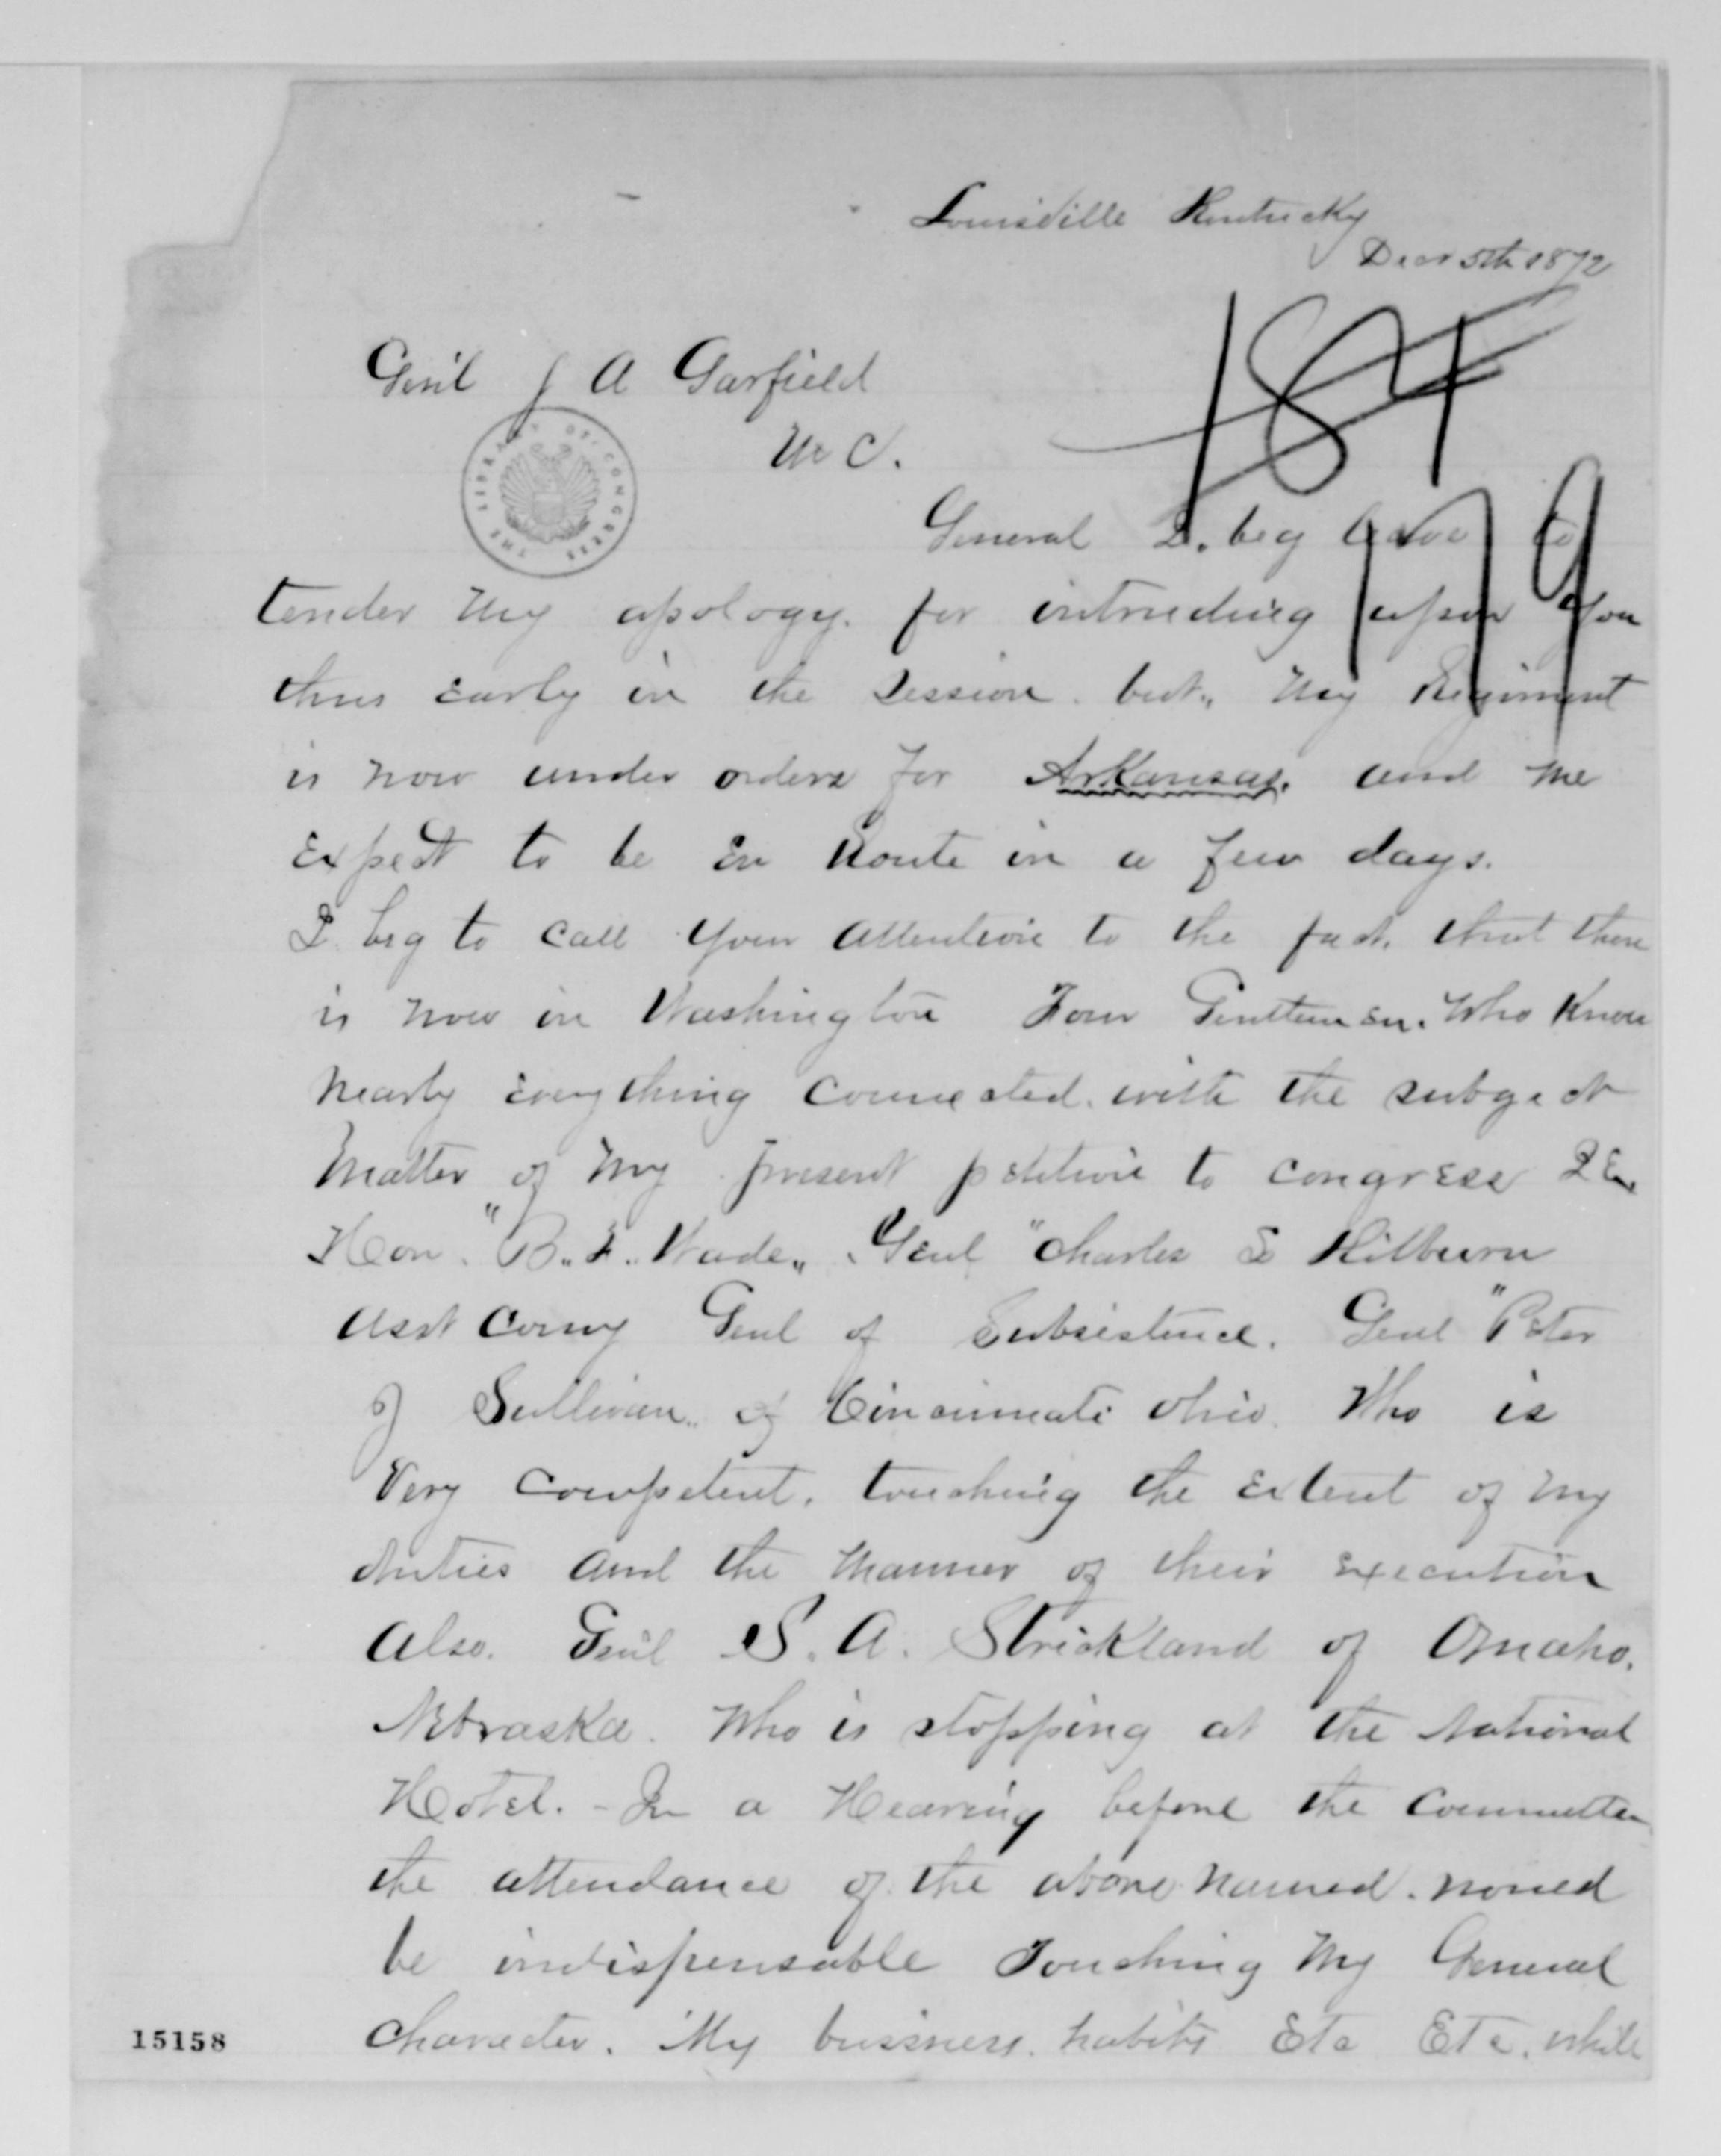 Louisville Kentucky
Decr 5th 1872
184
Genl J A Garfield
M C.
THE LIBRARY OF CONGRESS
179
General I. beg leave to
tender my apology. for intrudeing upon you
thus Early in the Session. but,, my Regiment
is now under orders for Arkansas. and we
Expect to be En Route in a few days.
I beg to call your attention to the fact, that there
is now in Washington Four Gentlemen. Who Know
nearly Everything connected. with the subject
Matter of my present petition to congress
Hon. "B.. F.. Wade,, Genl "Charles L Kilburn
Asst Comy Genl of Subsistence. Genl "Peter
J Sullivan,, of Cincinnati Ohio. Who is
Very competent. touching the Extent of my
duties and the manner of their Execution
Also. Genl S. A. Strickland of Omaha.
Nebraska. Who is stopping at the National
Hotel. - In a Hearing before the Committee
the attendance of the above named. would
be indispensable Touching my General
character. My bussness. habits Etc Etc. while
15158